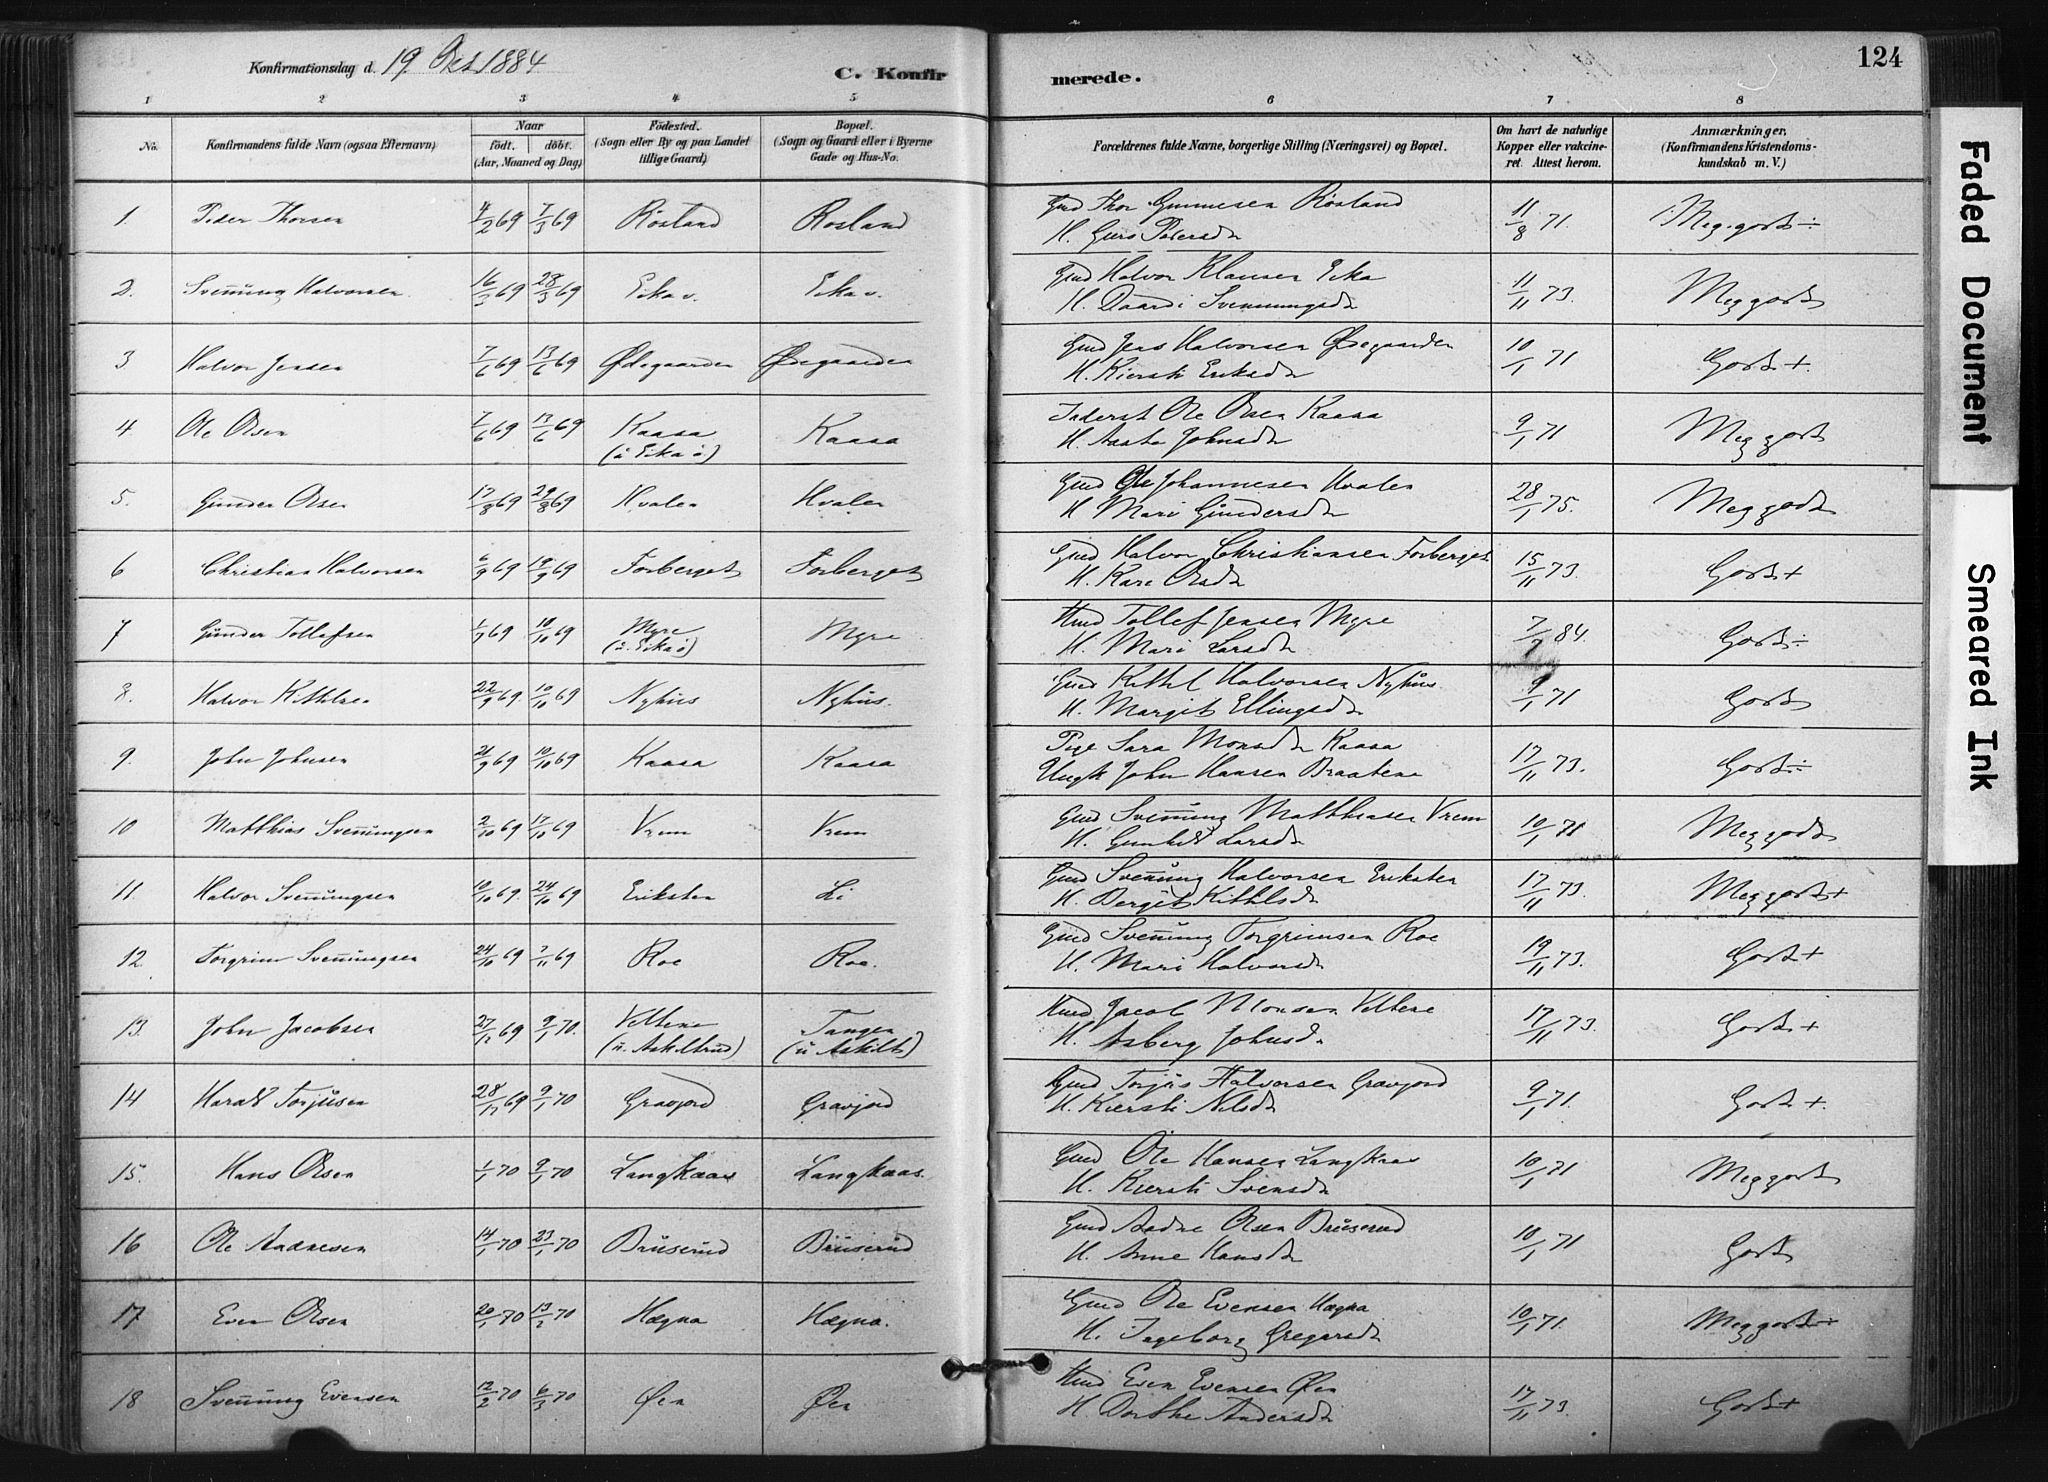 Konfirmationsdag d. 19 Oct 1884
C. Konfirmerede.
124
1 2 3 4 5 6 7 8
No.
Konfirmandens fulde Navn (ogsaa Efternavn)
Naar
født. døbt.
(Aar, Maaned og Dag)
Fødested.
(Sogn eller By og paa Landet
tillige Gaard)
Bopæl.
(Sogn og Gaard eller i Byerne
Gade og Hus-No.
Forældrenes fulde Navne, borgerlige Stilling (Næringsvei) og Bopæl.
Om havt de naturlige
Kopper eller vakcine-
ret. Attest herom.
Anmærkninger,
(Konfirmandens Kristendoms-
kundskab m. V.)
1. Peder Thorsen 4/2 69 7/3 69 Røsland Røsland Gmd Thor Gunnesen Røsland 11/8 71. Meg. godt ÷
H. Guro Pedersdr
2. Svenning Halvorsen 16/2 69 28/3 69 Eika v. Eika v. Gmd Halvor Klausen Eika 11/11 73. Meg godt
H. Daardi Svenningsdr
3 Halvor Jensen 7/6 69 13/6 69 Ødegaarden Ødegaarden Gmd Jens Halvorsen Ødegaarden 10/1 71 Godt +
H. Kiersti Eriksdr
4 Ole Olsen 7/6 69 13/6 69 Kaasa Kaasa Inderst Ole Olsen Kaasa 9/1 71 Meg godt
(u Eika ø) H. Aaste Johnsdr
5. Gunder Olsen 17/8 69 29/8 69 Hvalen Hvalen Gmd Ole Johannesen Hvalen 28/1 75. Meg godt
H Mari Gundersdr
6 Christian Halvorsen 6/9 69 19/9 69 Forberget Forberget Gmd Halvor Christiansen Forberget 15/11 73. Godt +
H. Kari Olsdr
7 Gunder Tollefsen 1/7 69 10/10 69 Myre Myre Hmd Tollef Jensen Myre 7/7 84. Godt ÷
(u. Eika ø) H. Mari Larsdr
8. Halvor Kittilsen 22/9 69. 10/10 69 Nyhus Nyhus. Gmd Kittil Halvorsen Nyhus 9/1 71 Godt
H. Margit Ellingsdr
9. John Johnsen 21/9 69 10/10 69 Kaasa Kaasa Pige Sara Monsdr Kaasa 17/11 73. Godt ÷
Ungk John Hansen Braatene
10 Matthias Svenningsen 2/10 69 17/10 69 Vrem Vrem Gmd Svenning Matthiasen Vrem 10/1 71 Meg godt
H. Gunhild Larsdr
11. Halvor Svenningsen 10/10 69. 24/10 69 Eriksten Li Gmd Svenning Halvorsen Eriksten 17/11 73. Meg godt +
H. Bergit Kittilsdr
12. Torgrim Svenningsen 24/10 69 7/11 69 Roe Roe. Gmd Svenning Torgrimsen Roe 19/11 73. Godt +
H. Mari Halvorsdr
13. John Jacobsen 27/12 69 9/1 70. Veltene Tangen Hmd Jacob Monsen Veltene 17/11 73. Godt +
(u. Askiltrud) (u Askilt) H. Asberg Johnsdr
14 Harald Torjusen 28/12 69 9/1 70 Gravjord Gravjord Gmd Torjus Halvorsen Gravjord 9/1 71. Godt +.
H. Kiersti Nilsdr
15. Hans Olsen 1/1 70 9/1 70 Langkaas Langkaas. Gmd Ole Hansen Langkaas 10/1 71 Meg godt
H. Kiersti Svensdr
16 Ole Aadnesen 14/1 70 23/1 70 Bruserud Bruserud Gmd Aadne Olsen Bruserud 10/1 71 Godt
H. Anne Hansdr
17 Even Olsen 20/1 70 13/2 70 Hægna Hægna. Gmd Ole Evensen Hægna 10/1 71. Meg godt +
H. Ingeborg Gregersdr
18 Svenning Evensen 12/2 70 6/3 70 Øen Øen Hmd Even Evensen Øen 17/11 73. Godt +
H Dorthe Andersdr
Faded Document
Smeared Ink